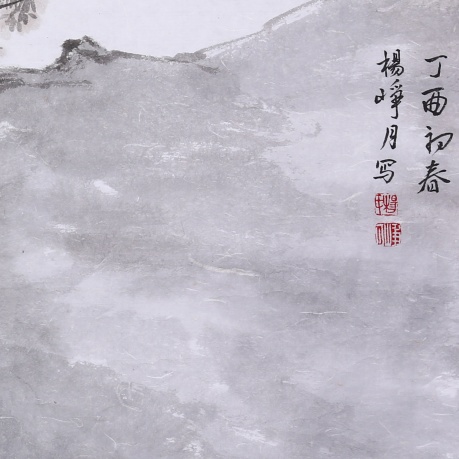 丁酉初春
楊崢月写